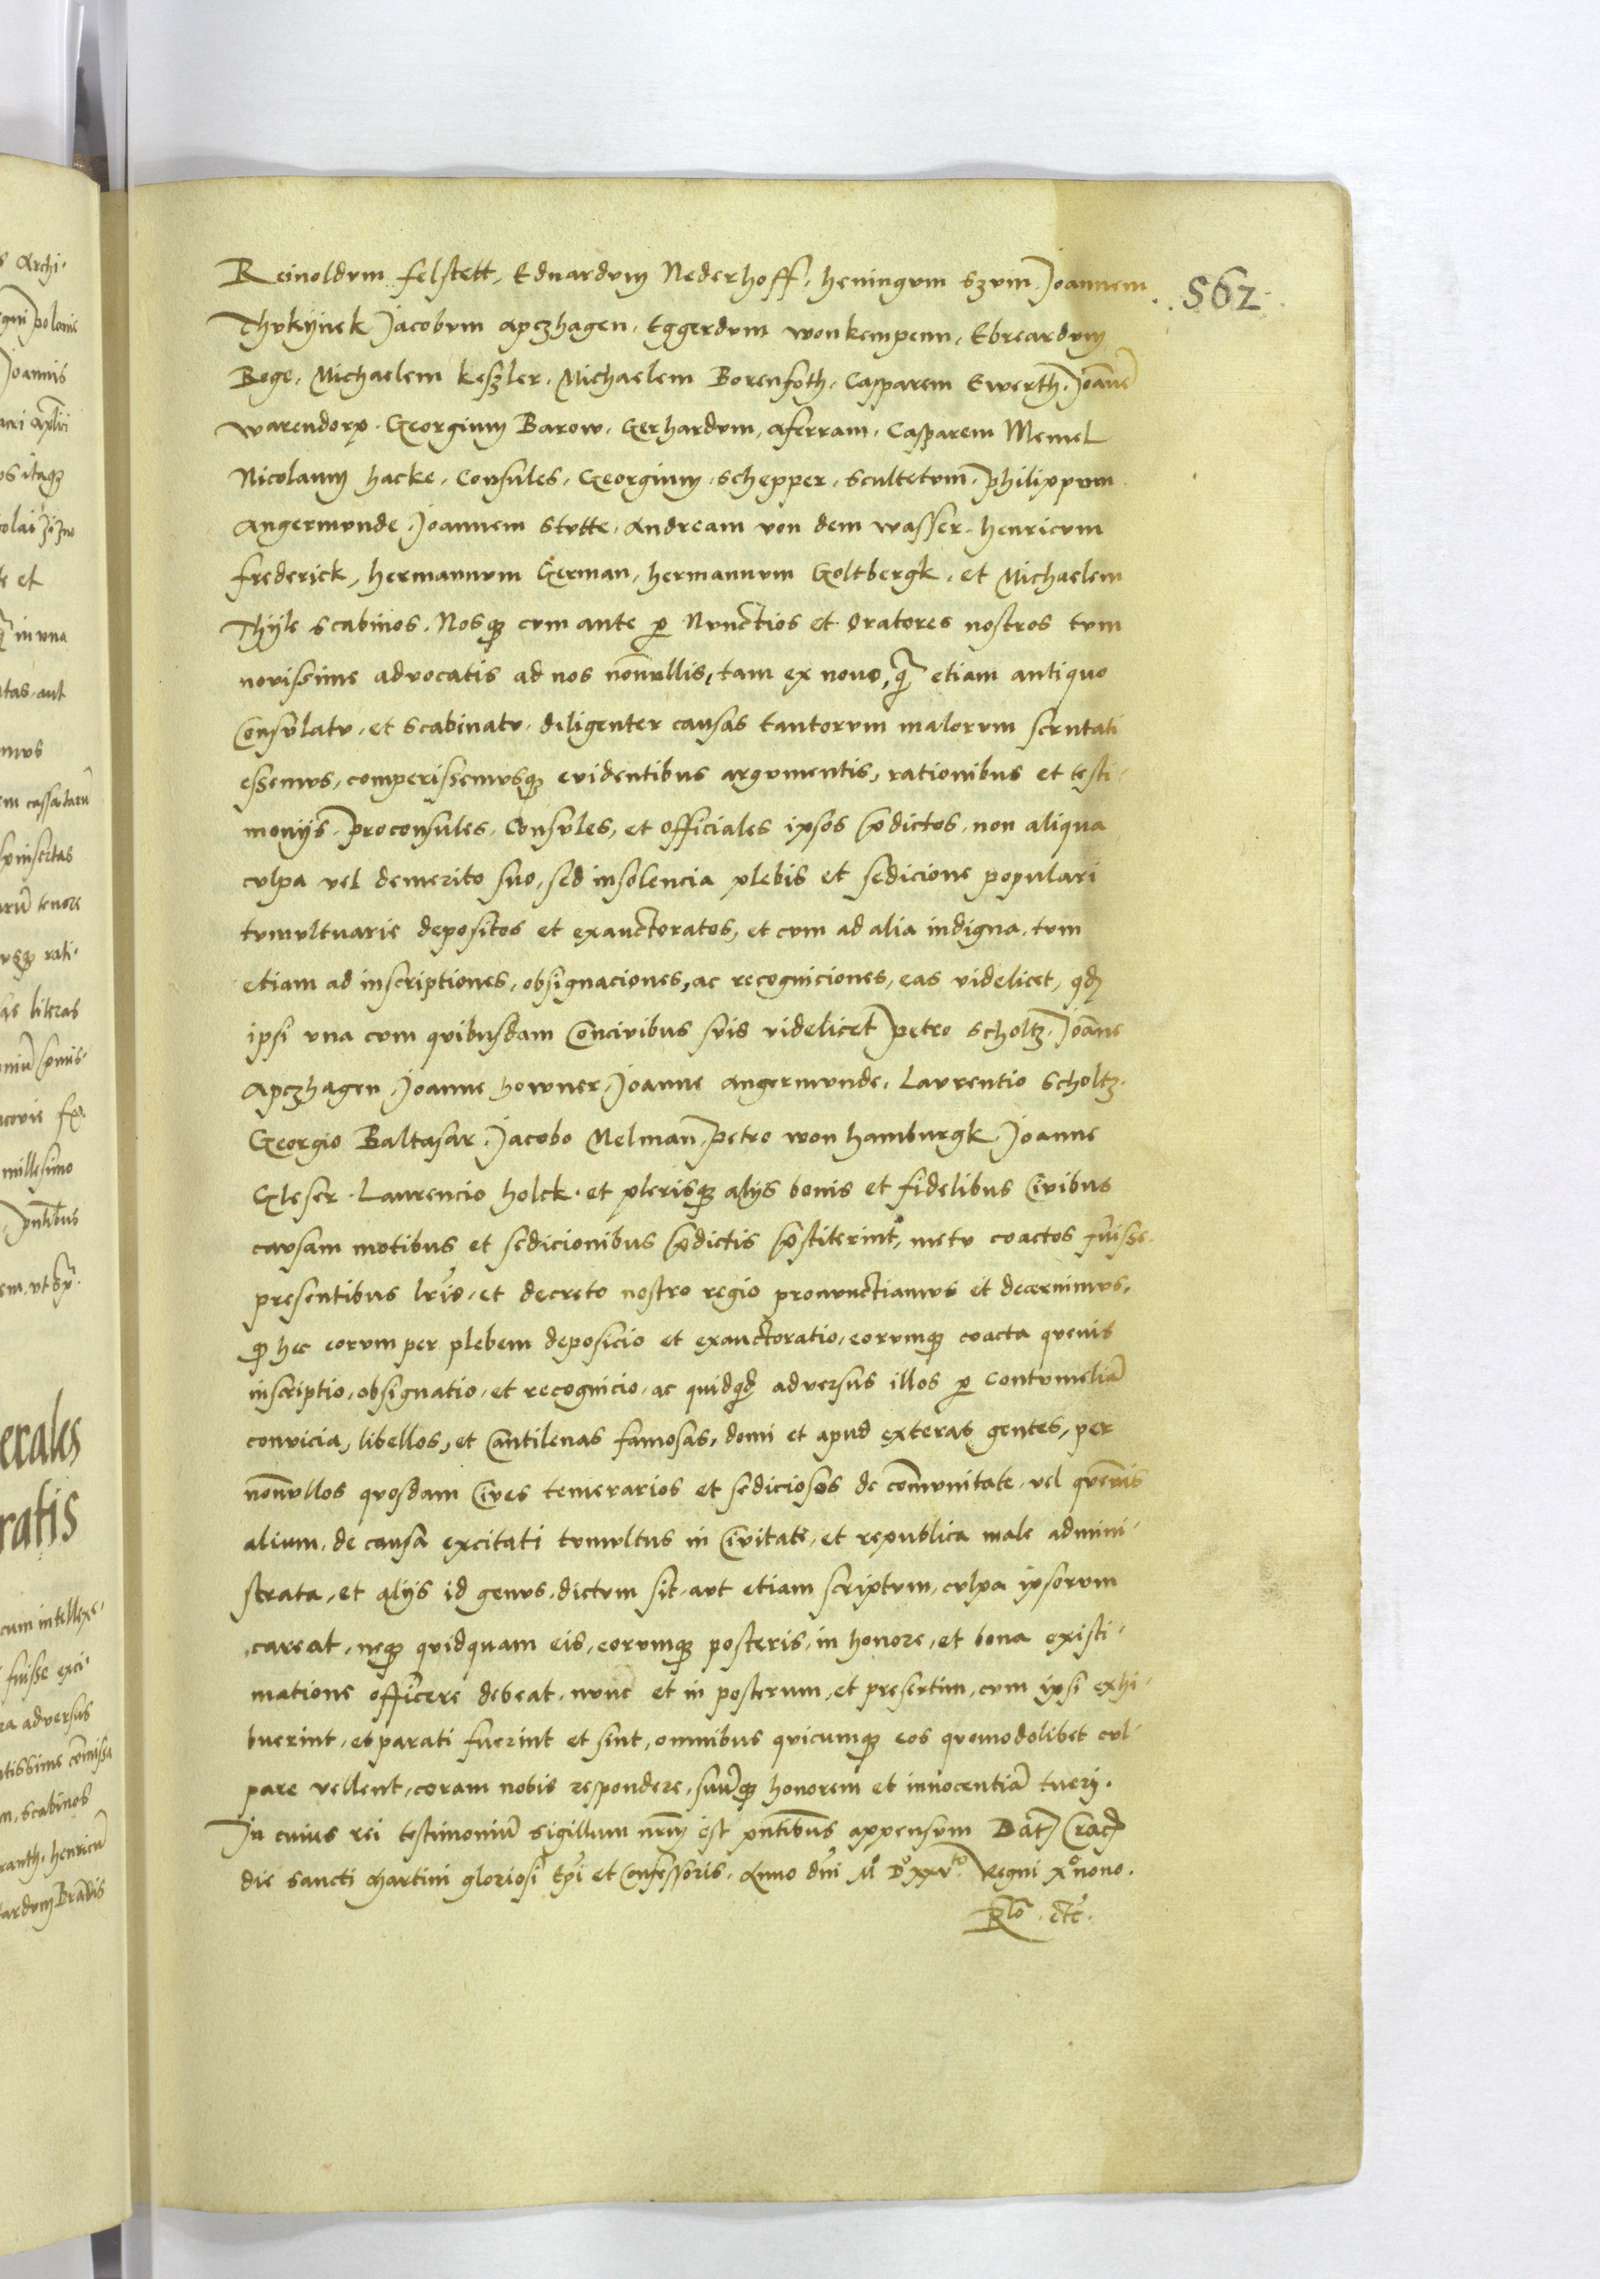 .562.
Reinoldum felstett, Eduardum Nederhoff, heningum Szum, Joannem
Thvkyinek Jacobum Apczhagen, Eggerdum won kempenn, Ebreardum
Rege, Michaelem keszler, Michaelem Borenfoth, Casparem Ewerth, Joanne᷃
Warendorp, Georgium Barow, Gerhardum, aferram, Casparem Memel
Nicolaum hacke, Consules, Georgium schepper, scultetum, Philippum
Angermunde, Joannem Stutte, Andream von dem wasser, henricum
frederick, hermannum German, hermannum Goltbergk, et Michaelem
Thyle scabinos, Nosq3 cum ante p Nunctios et Oratores nostros tum
novissime advocatis ad nos nõnullis, tam ex nouo, q̃ etiam antiquo
Consulatu, et scabinatu, diligenter causas tantorum malorum scrutati
essemus, comperissemusq3 euidentibus argumentis, rationibus et testi-
moniis, Proconsules, Consules, et officiales ipsos p̃dictos, non aliqua
culpa vel demerito suo, sed insolencia plebis et sedicione populari
tumultuarie depositos et exauctoratos, et cum ad alia indigna, tum
etiam ad inscriptiones, obsignaciones, ac recogniciones, eas videlicet, qd
ipsi una cum quibusdam Conciuibus suis videlicet Petro Scholtz, Joãne
Apczhagen, Joanne howner, Joanne Angermunde, Laurentio Scholtz,
Georgio Baltasar, Jacobo Melman, Petro won hamburgk, Joanne
Gleser, Laurencio holck, et plerisq3 aliis bonis et fidelibus Ciuibus
causam motibus et sedicionibus p̃dictis p̃stiterint, metu coactos fuisse,
presentibus lr̃is, et decreto nostro regio pronunctiamus et decernimus,
q3 hec eorum per plebem deposicio et exauctoratio, eorumq3 coacta queuis
inscriptio, obsignatio, et recognicio, ac quidqd adversus illos p contumeliã
convicia, libellos, et Cantilenas famosas, domi et apud exteras gentes, per
nõnullos quosdam Ciues temerarios et sediciosos de cõmunitate, vel quẽuis
alium, de causa excitati tumultus in Ciuitate, et republica male admini-
strata, et aliis id genus, dictum sit, aut etiam scriptum, culpa ipsorum
careat, neq3 quidquam eis, eorumq3 posteris, in honore, et bona existi-
matione officere debeat, nunc et in posterum, et presertim, cum ipsi exhi-
buerint, et parati fuerint et sint, omnibus quicumq3 eos quomodolibet cul-
pare vellent, coram nobis respondere, suũq3 honorem et innocentiã tueri.
In cuius rei testimoniũ sigillum nr̃m est pñtibus appensum Dat Crac
die sancti Martini gloriosi Ep̃i et Confessoris, Anno dñi M° D° xxv to Regni x° nono.